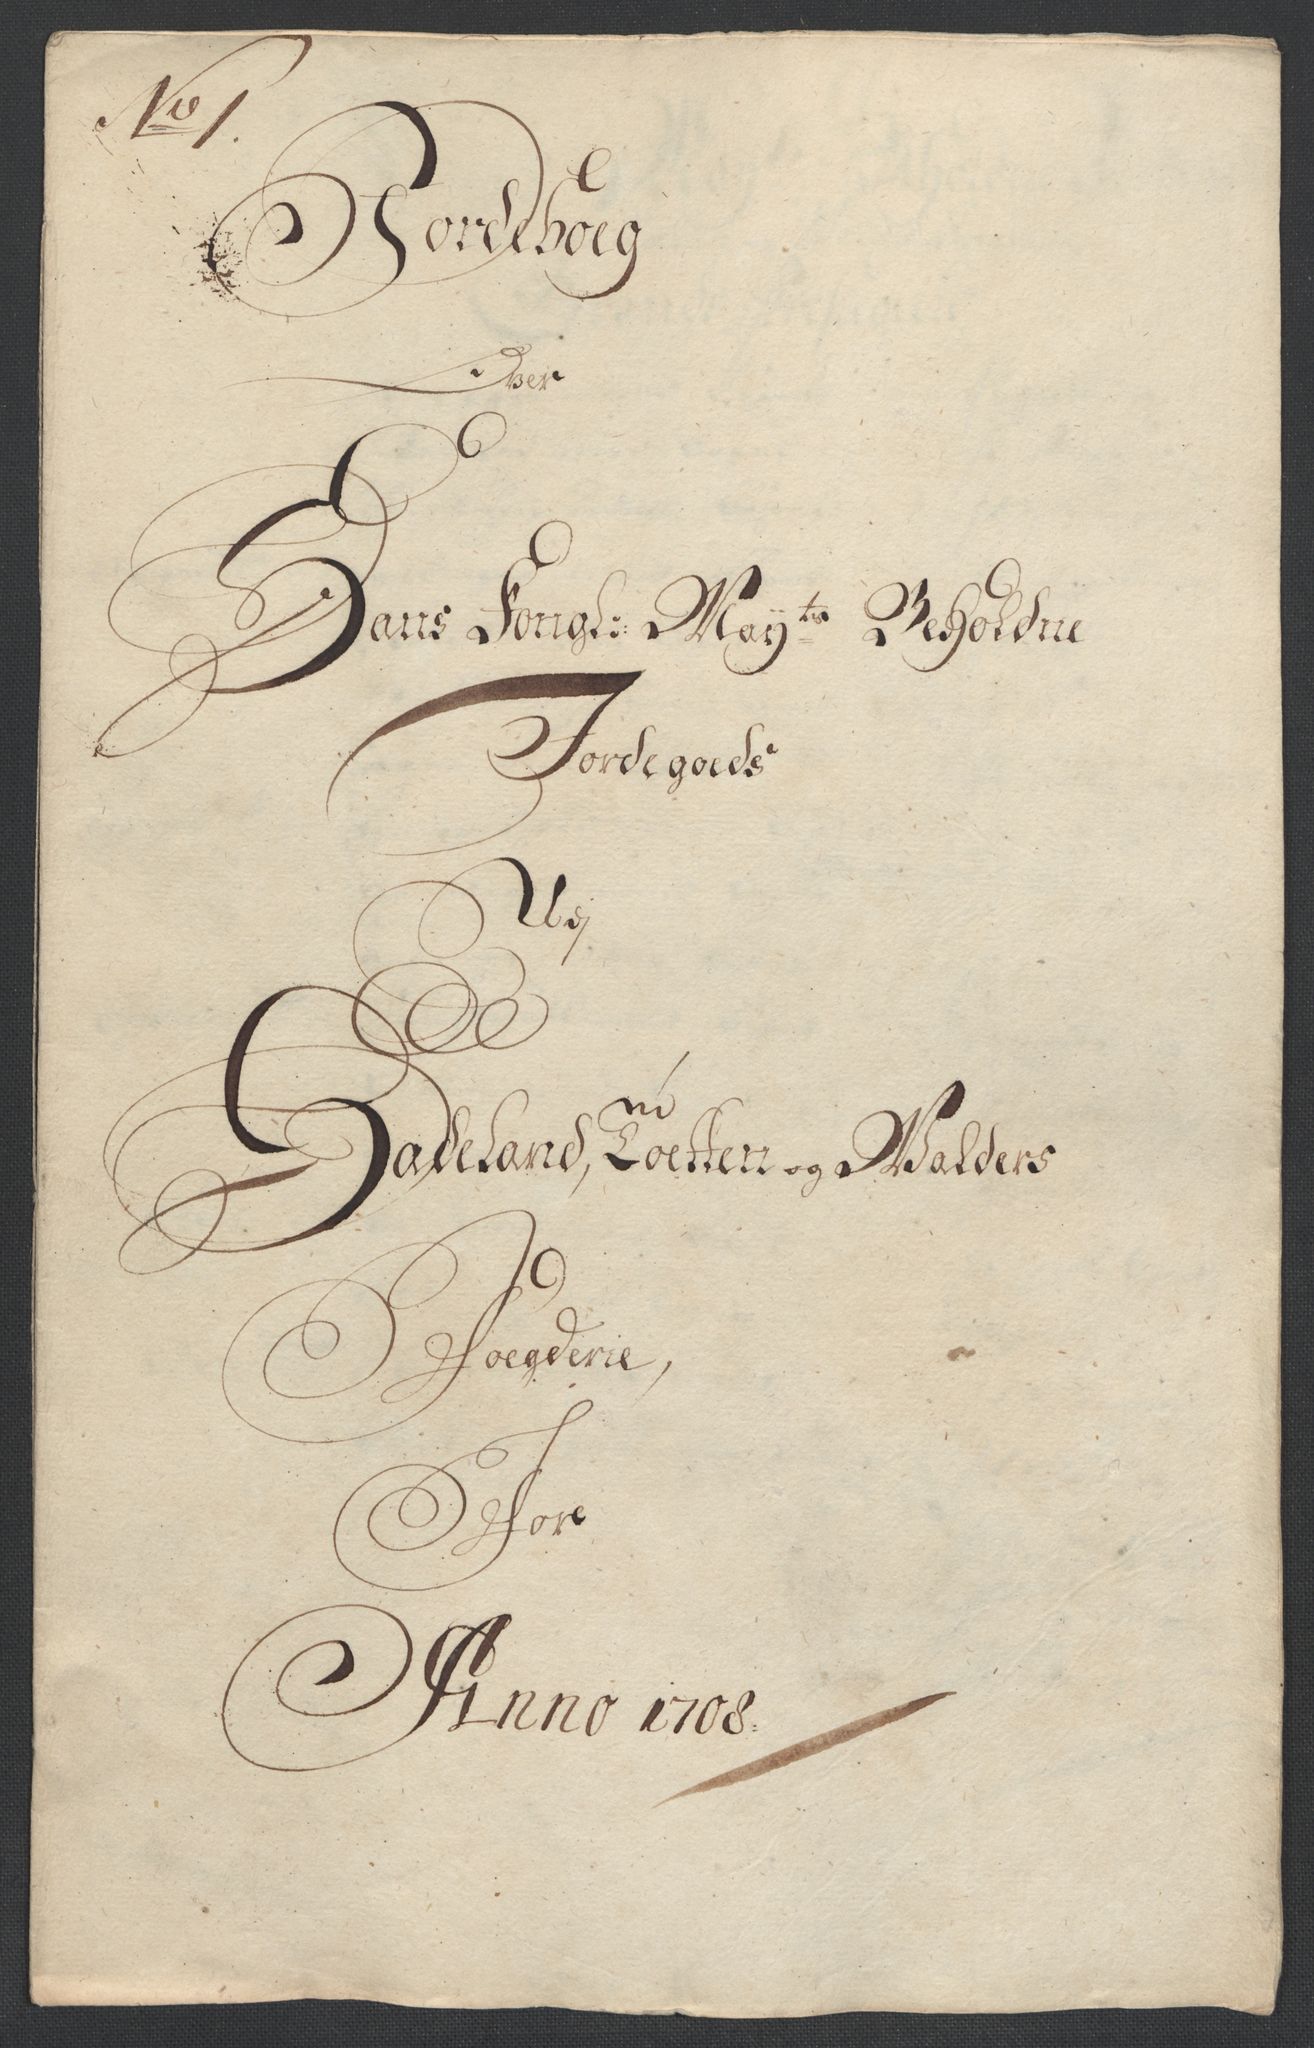 No 1.
Jordeboeg
Over
Hans Kongl: Mayts Beholdne
Jordegoeds
Udj
Hadeland, Toetten og Walders
Foegderie,
For
Anno 1708.